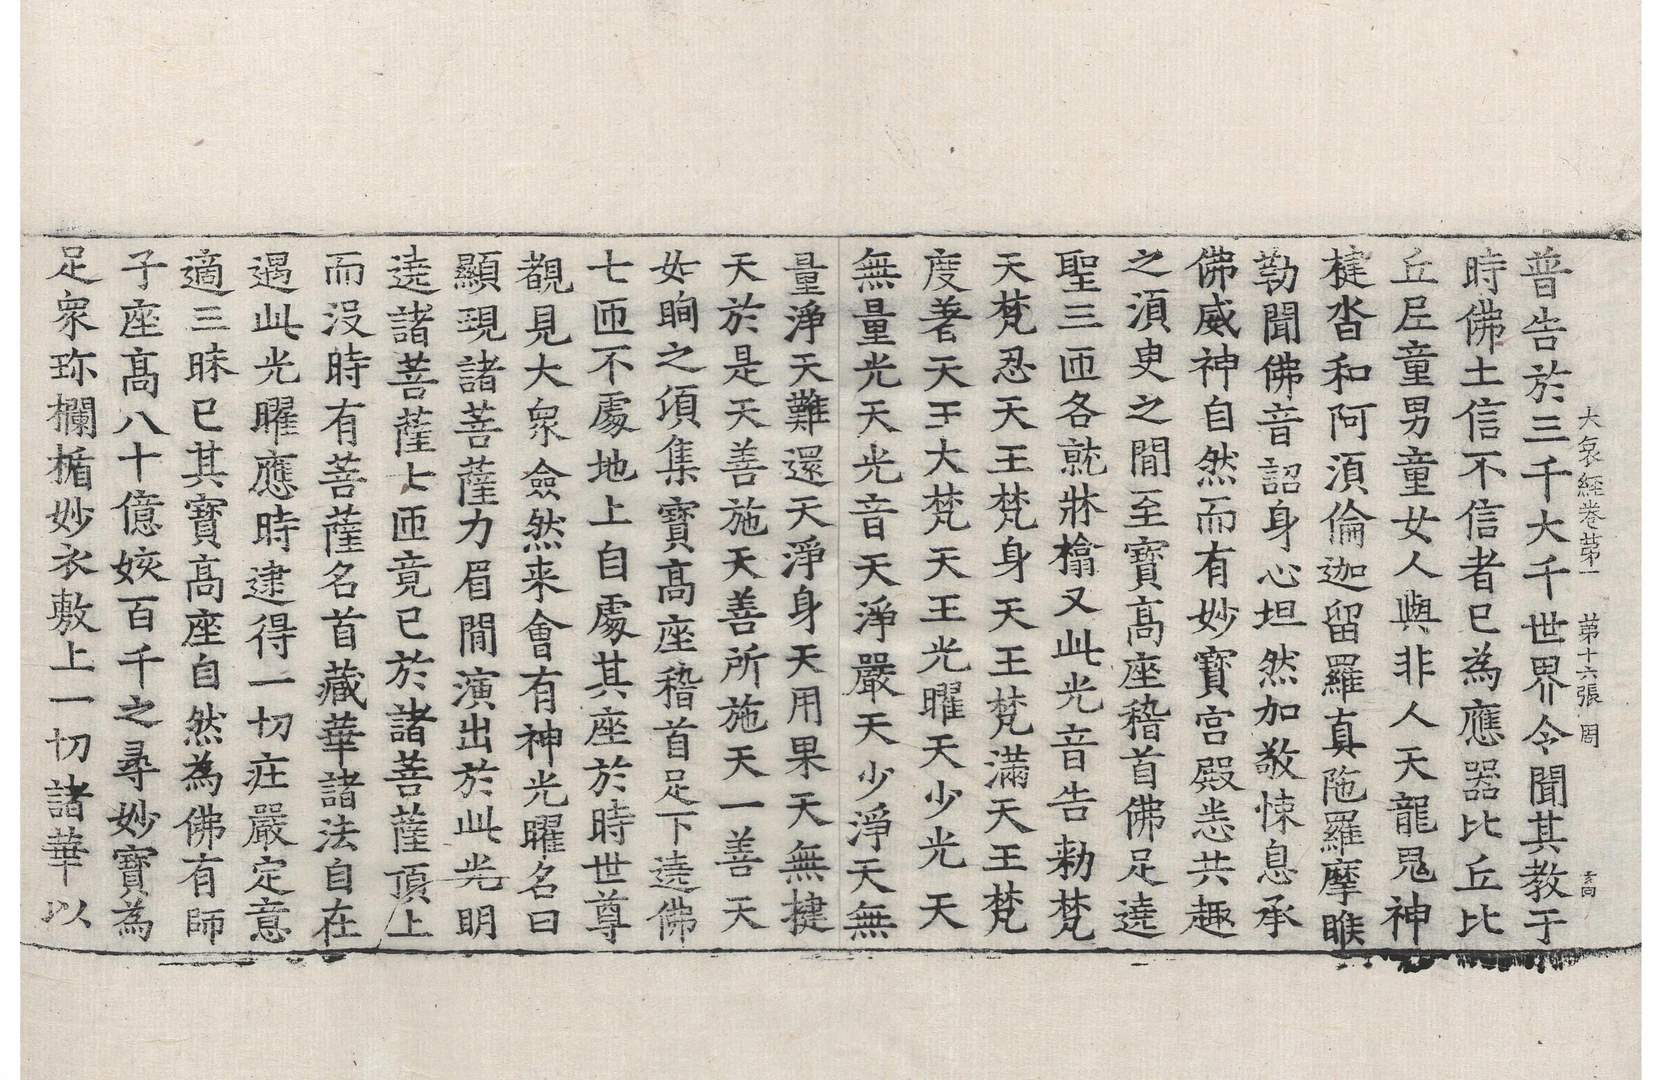 大哀經卷第一　第十六張　周
普告於三千大千世界令聞其教于
時佛土信不信者已為應器比丘比
丘尼童男童女人與非人天龍鬼神
揵沓和阿須倫迦留羅真陁羅摩睺
勒聞佛音詔身心坦然加敬悚息承
佛威神自然而有妙寶宮殿悉共趣
之須臾之閒至寶高座稽首佛足遶
聖三匝各就牀檎又此光音告勑梵
天梵忍天王梵身天王梵滿天王梵
度著天王大梵天王光曜天少光天
無量光天光音天淨嚴天少淨天無
量淨天難還天淨身天用果天無揵
天於是天善施天善所施天一善天
如眴之須集寶高座稽首足下遶佛
七匝不處地上自處其座於時世尊
覩見大衆僉然来會有神光曜名曰
顯現諸菩薩力眉閒演出於此光明
遶諸菩薩七匝竟已於諸菩薩頂上
而没時有菩薩名首藏華諸法自在
遇此光曜應時逮得一切庄嚴定意
適三昧已其寶高座自然為佛有師
子座高八十億姟百千之尋妙寶為
足衆珎欄楯妙衣敷上一切諸華以